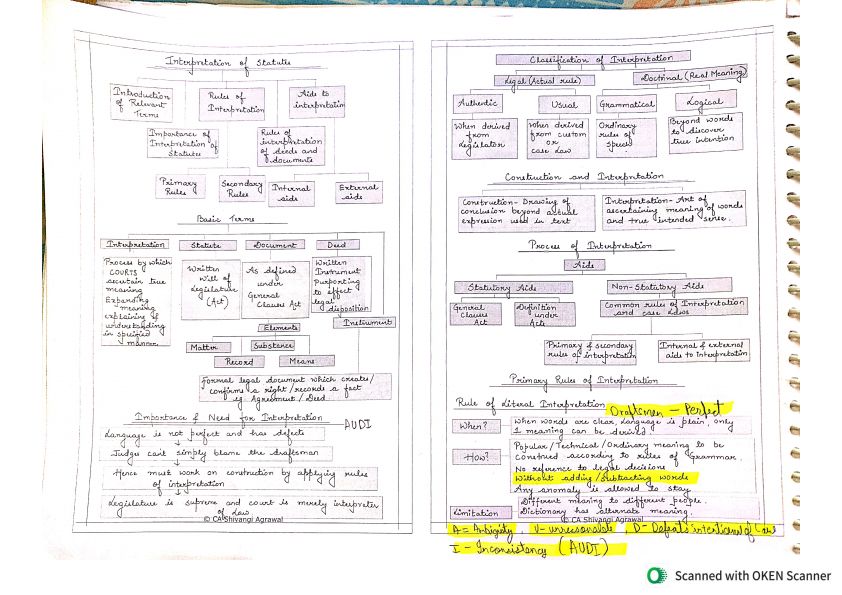 Interpretation of Statutes
Introduction
of Relevant
Terms
Rules of
Interpretation
Aids to
interpretation
Importance of
Interpretation of
Statutes
Rules of
interpretation
of deeds and
documents
Primary
Rules
Secondary
Rules
Internal
aids
External
aids
Basic Terms
Interpretation
Statute
Document
Deed
Process by which
COURTS
ascertain true
meaning
Expanding
meaning
explaining &
understanding
in specified
manner
Written
Will of
Legislature
(Act)
As defined
under
General
Clauses Act
Written
Instrument
Purporting
to effect
legal
disposition
Instrument
Elements
Matter
Substance
Record
Means
Formal legal document which creates/
confirms a right/records a fact
eg Agreement/Deed
Importance & Need for Interpretation
AUDI
Language is not perfect and has defects
Judges can't simply blame the draftsman
Hence must work on construction by applying rules
of interpretation
Legislature is supreme and court is merely interpreter
of Law
© CA Shivangi Agrawal
Classification of Interpretation
Legal (Actual rule)
Doctrinal (Real Meaning)
Authentic
Usual
Grammatical
Logical
When derived
from
Legislator
When derived
from custom
or
case Law
Ordinary
rules of
speech
Beyond words
to discover
true intention
Construction and Interpretation
Construction- Drawing of
conclusion beyond actual
expression used in text
Interpretation- Art of
ascertaining meaning of words
and true intended sense.
Process of Interpretation
Aids
Statutory Aids
Non-Statutory Aids
General
Clauses
Act
Definition
under
Acts
Common rules of Interpretation
and case Laws
Primary & secondary
rules of interpretation
Internal & external
aids to interpretation
Primary Rules of Interpretation
Rule of Literal Interpretation
Draftsmen - Perfect
When?
When words are clear, language is plain, only
1 meaning can be derived
How?
Popular/Technical/Ordinary meaning to be
construed according to rules of Grammar.
No reference to legal decisions
Without adding/Substracting words
Any anomaly is allowed to stay
Limitation
Different meaning to different people.
Dictionary has alternate meaning.
© CA Shivangi Agrawal
A = Ambigity, U- unreasonable, D- Defeats intention of
I - Inconsistency (AUDI)
Scanned with OKEN Scanner